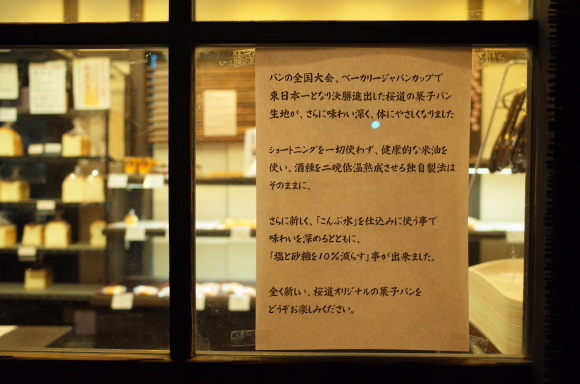 パンの全国大会、ベーカリージャパンカップで
東日本一となり決勝進出した桜道の菓子パン
生地が、さらに味わい深く、体にやさしくなりました
ショートニングを一切使わず、健康的な米油を
使い、酒種を二晩低温熟成させる独自製法は
そのままに、
さらに新しく、「こんぶ水」を仕込みに使う事で
味わいを深めるとともに、
「塩と砂糖を10%減らす」事が出来ました。
全く新しい、桜道オリジナルの菓子パンを
どうぞお楽しみください。